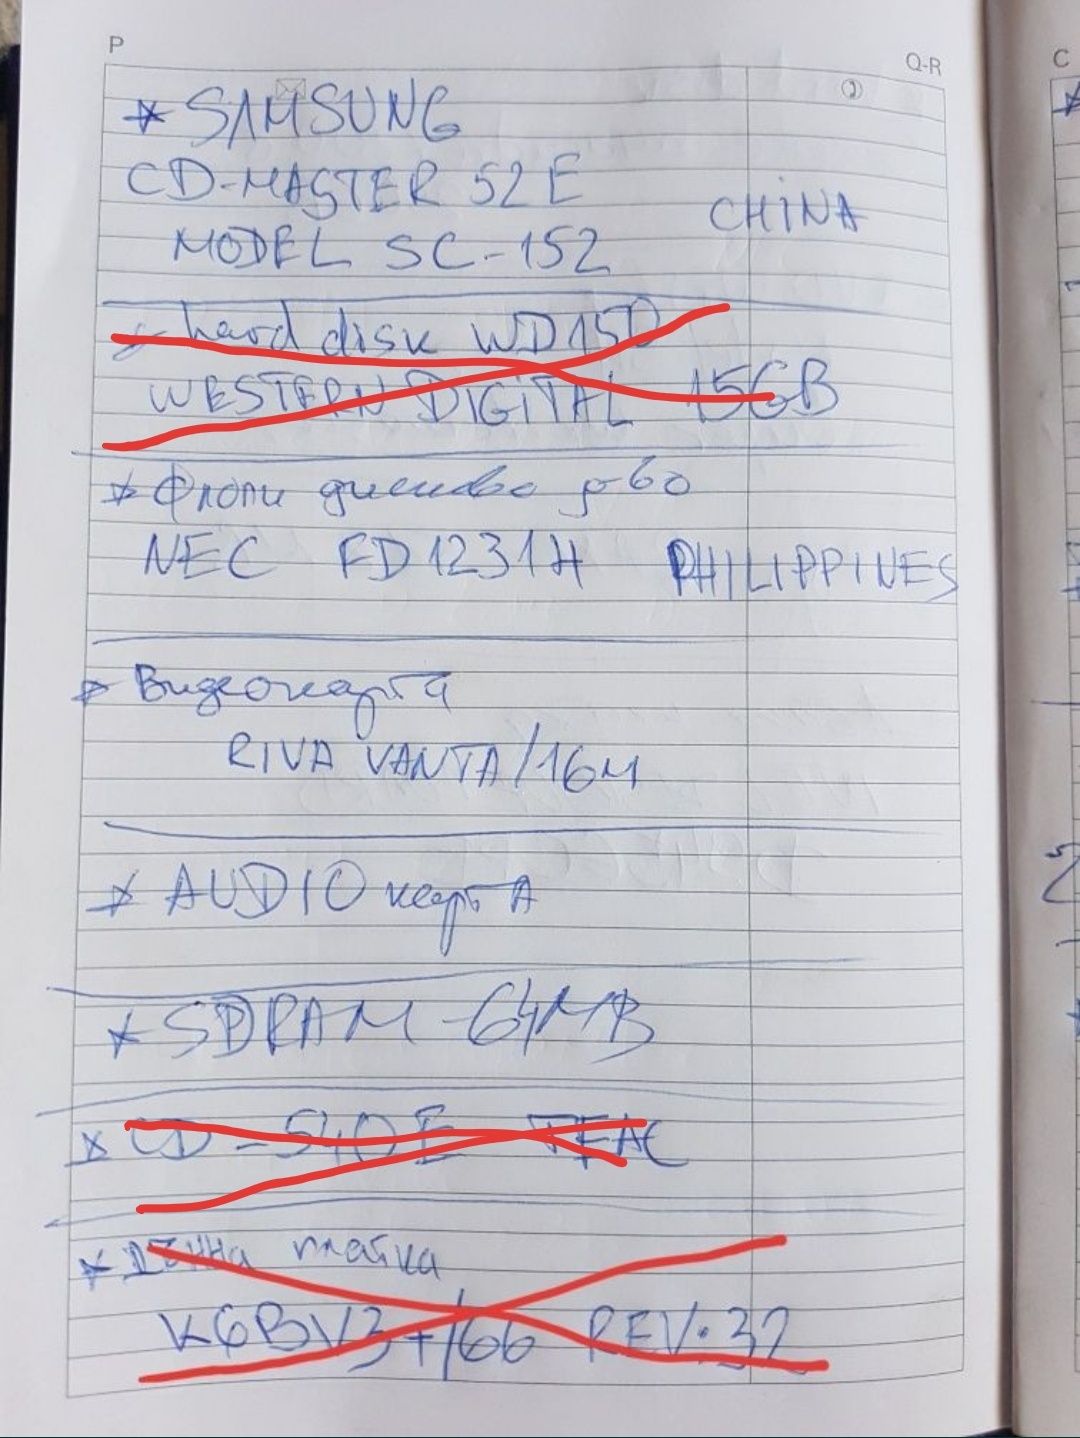 P
Q-R
C
* SAMSUNG
CD-MASTER 52E
CHINA
MODEL SC-152
* hard disk WD150
WESTERN DIGITAL 15GB
* Флопи дисково у-во
NEC FD1231H PHILIPPINES
* Видеокарта
RIVA VANTA/16M
* AUDIO карта
* SDRAM - 64MB
* CD-540E TEAC
* Дънна платка
K6BV3+/66 REV:32